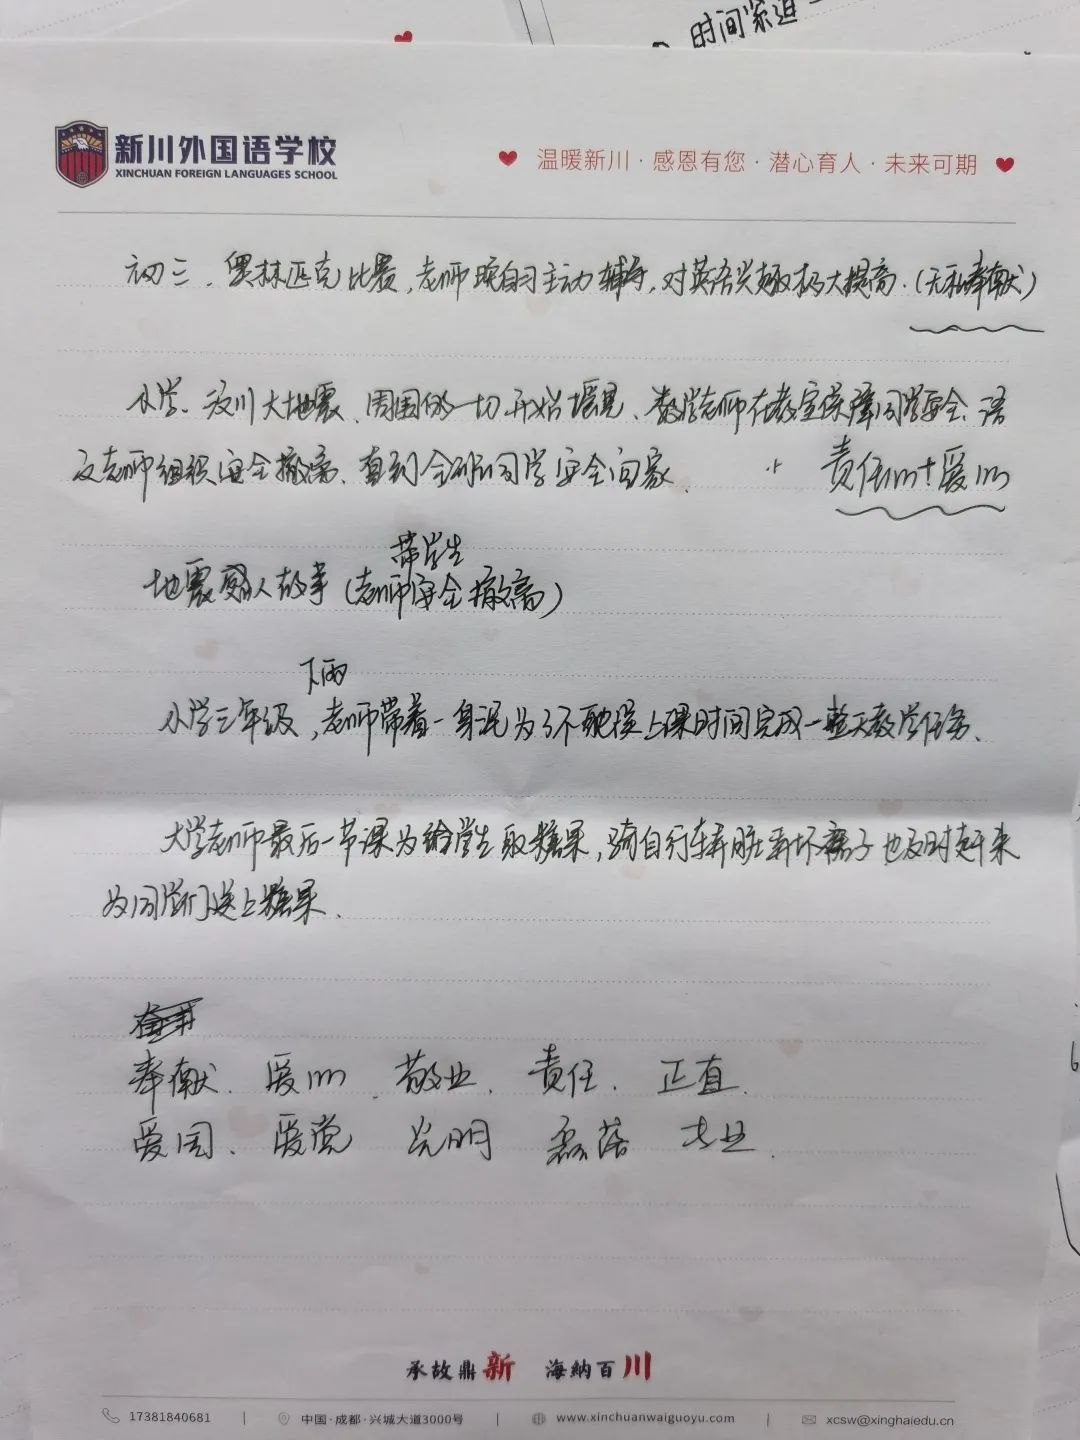 时间紧迫
新川外国语学校
XINCHUAN FOREIGN LANGUAGES SCHOOL
温暖新川·感恩有您·潜心育人·未来可期
初三，奥林匹克比赛，老师晚自习主动辅导，对英语兴趣极大提高.（无私奉献）
小学、汶川大地震、周围的一切开始摇晃、数学老师在教室保障同学安全、语
文老师组织安全撤离、直到全部同学安全回家.
责任心+爱心
带学生
地震感人故事（老师安全撤离）
下雨
小学三年级，老师带着一身泥为了不耽误上课时间完成一整天教学任务、
大学老师最后一节课为给学生取糖果，骑自行车弄脏弄坏裙子也及时赶来
为同学们送上糖果.
奉献. 爱心. 敬业. 责任. 正直.
爱国. 爱党 光明 磊落 专业.
承故鼎新 海纳百川
17381840681 | 中国·成都·兴城大道3000号 | www.xinchuanwaiguoyu.com | xcsw@xinghaiedu.cn